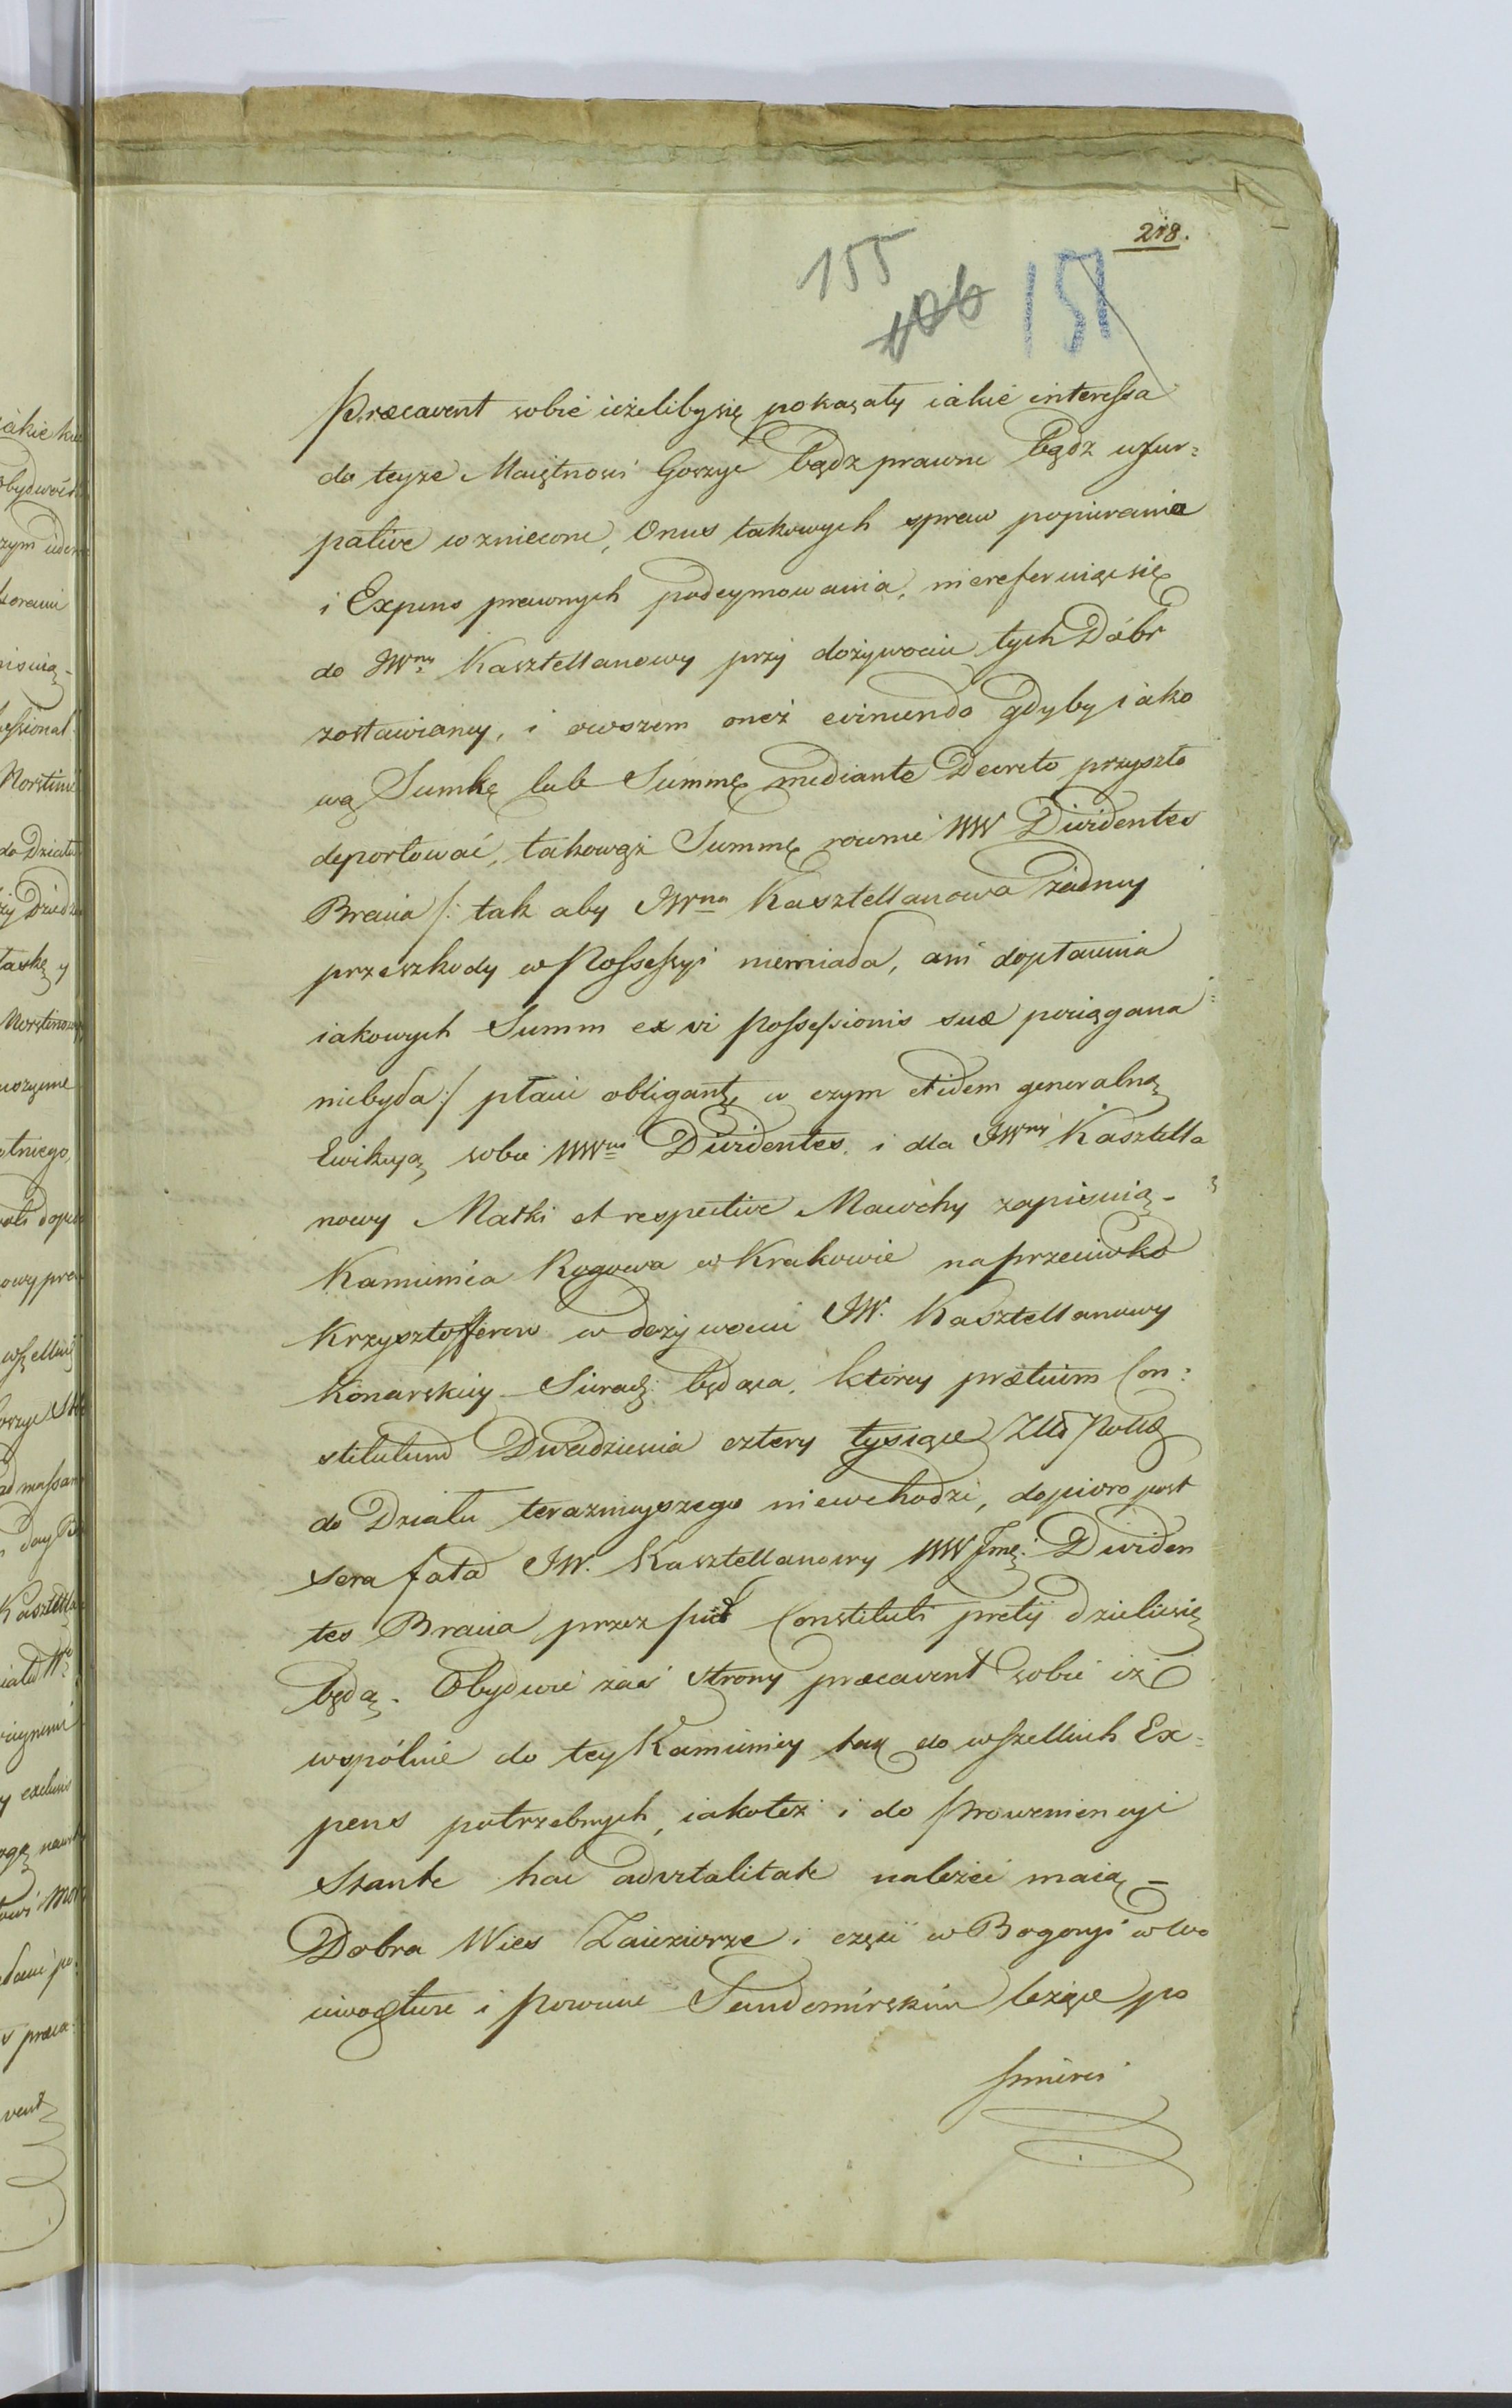 218.
155
151
Præcavent sobie ieżeliby się pokazały iakie interessa
do teyze Maiętnosci Goszyc bądz prawne bądz uzur=
pative wzniecone, Onus takowych spraw popierania
i Expens prawnych podeymowania, niereferuiąc się
do JWney Kasztellanowy przy dożywociu tych Dóbr
zostawioney, i owszem oneż evincendo gdyby iako
wą Sumkę lub Summę mediante Decreto przyszło
deportować, takowąż Summę rownie WW Dividentes
Bracia /: tak aby JWna Kasztellanowa żadney
przeszkody w Possessyi niemiała, ani dopłacenia
iakowych Summ ex vi possessionis suæ pociągana
niebyła :/ płacić obligantur, w czym etidem generalną
Ewikcyą sobie WWni Dividentes. i dla JWney Kasztella
nowy Matki et respective Macochy zapisuią -
Kamienica Rogowa w Krakowie naprzeciwko
Krzysztofferow w dożywociu JW. Kasztellanowy
Konarskiey Sieradz: będąca, ktorey prætium Con:
stitutum Dwadziescia cztery tysiące Złł Polls
do Działu teraznieyszego niewchodzi, dopiero post
sera fata JW. Kasztellanowy WW Jmę: Dividen
tes Bracia przez puł Constituti pretij dzielic się
będą. Obydwie zaś strony præcavent sobie iż
wspólnie do tey Kamienicy tak do wszelkich Ex=
pens potrzebnych, iakoteż i do Proweniencyi
stante hac advitalitate należeć maią -
Dobra Wies Zaiezierze i częsci w Bogoryi w Wo
iewodztwie i Powiecie Sandomirskim leżące po
smierci